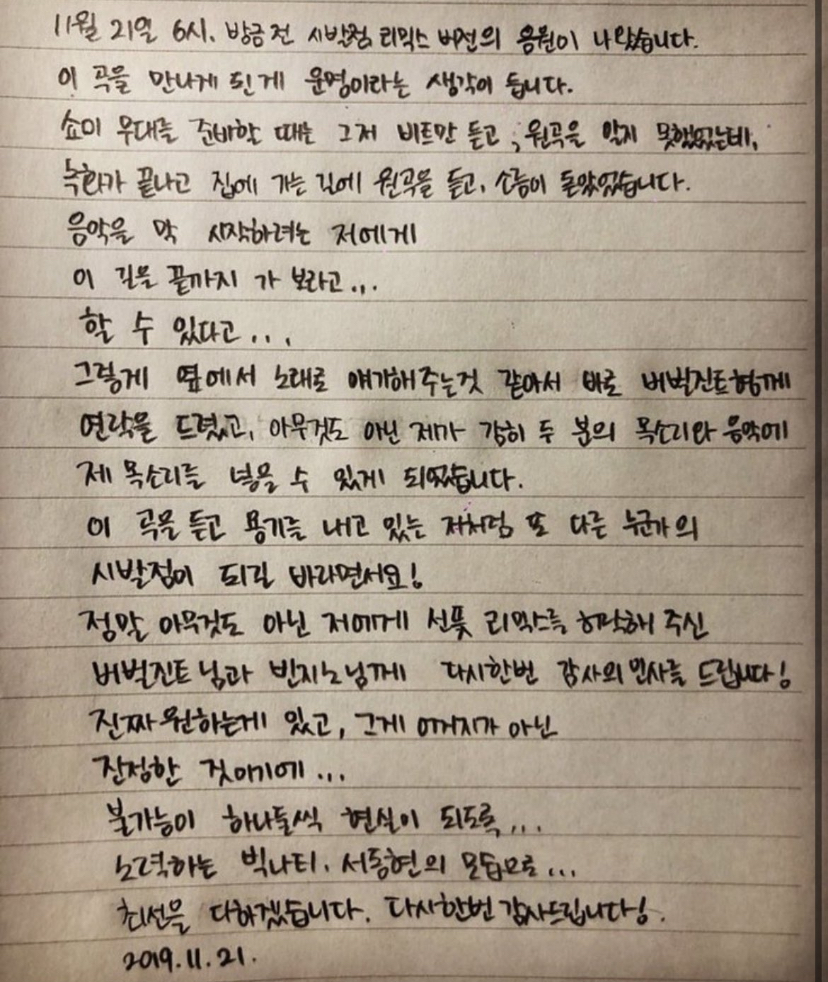 11월 21일 6시. 방금 전 시발점 리믹스 버전의 음원이 나왔습니다.
이 곡을 만나게 된 게 운명이라는 생각이 듭니다.
쇼미 무대를 준비할 때는 그저 비트만 듣고, 원곡을 알지 못했었는데,
녹화가 끝나고 집에 가는 길에 원곡을 듣고, 소름이 돋았었습니다.
음악을 막 시작하려는 저에게
이 길을 끝까지 가 보라고...
할 수 있다고...
그렇게 옆에서 노래로 얘기해주는것 같아서 바로 버벌진트형께
연락을 드렸고, 아무것도 아닌 제가 감히 두 분의 목소리와 음악에
제 목소리를 넣을 수 있게 되었습니다.
이 곡을 듣고 용기를 내고 있는 저처럼 또 다른 누군가의
시발점이 되길 바라면서요!
정말 아무것도 아닌 저에게 선뜻 리믹스를 허락해 주신
버벌진트님과 빈지노님께 다시한번 감사의 인사를 드립니다!
진짜 원하는게 있고, 그게 어거지가 아닌
진정한 것이기에...
불가능이 하나둘씩 현실이 되도록...
노력하는 빅나티. 서동현의 모습으로...
최선을 다하겠습니다. 다시한번 감사드립니다!.
2019.11.21.